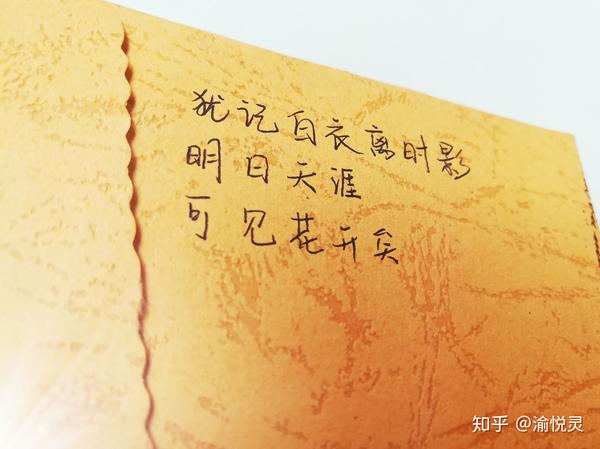 犹记白衣离时影
明日天涯
可见花开矣
知乎 @渝悦灵